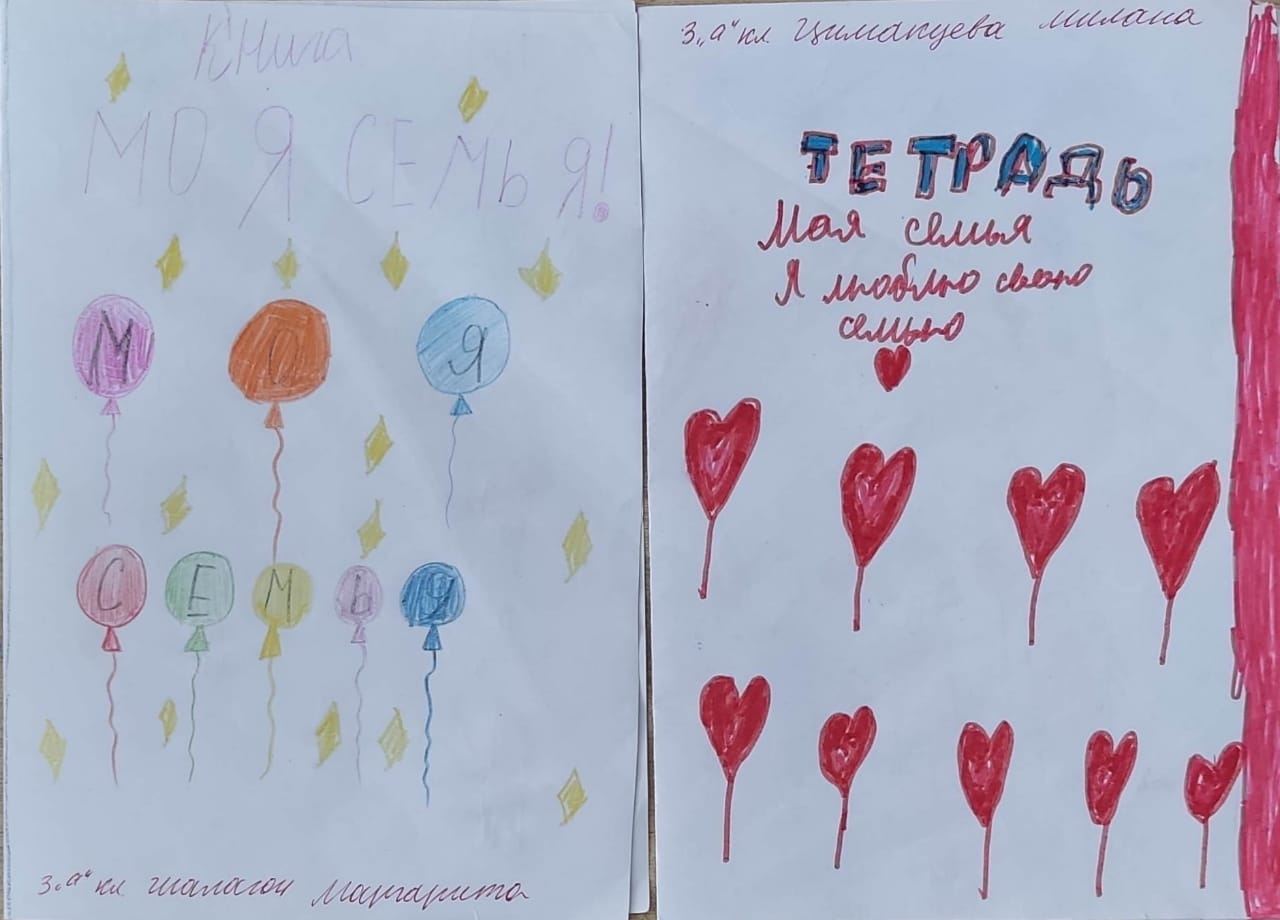 Книга
МОЯ СЕМЬЯ!
М О Я
С Е М Ь Я
3 „а" кл Шалагон Маргарита
3 „а" кл Цимакуева Милана
ТЕТРАДЬ
Моя семья
Я люблю свою
семью